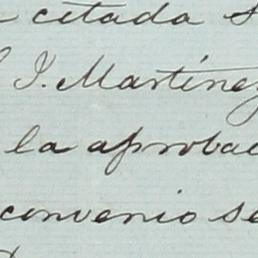 citada
J. Martinez
la aprobac
convenio se